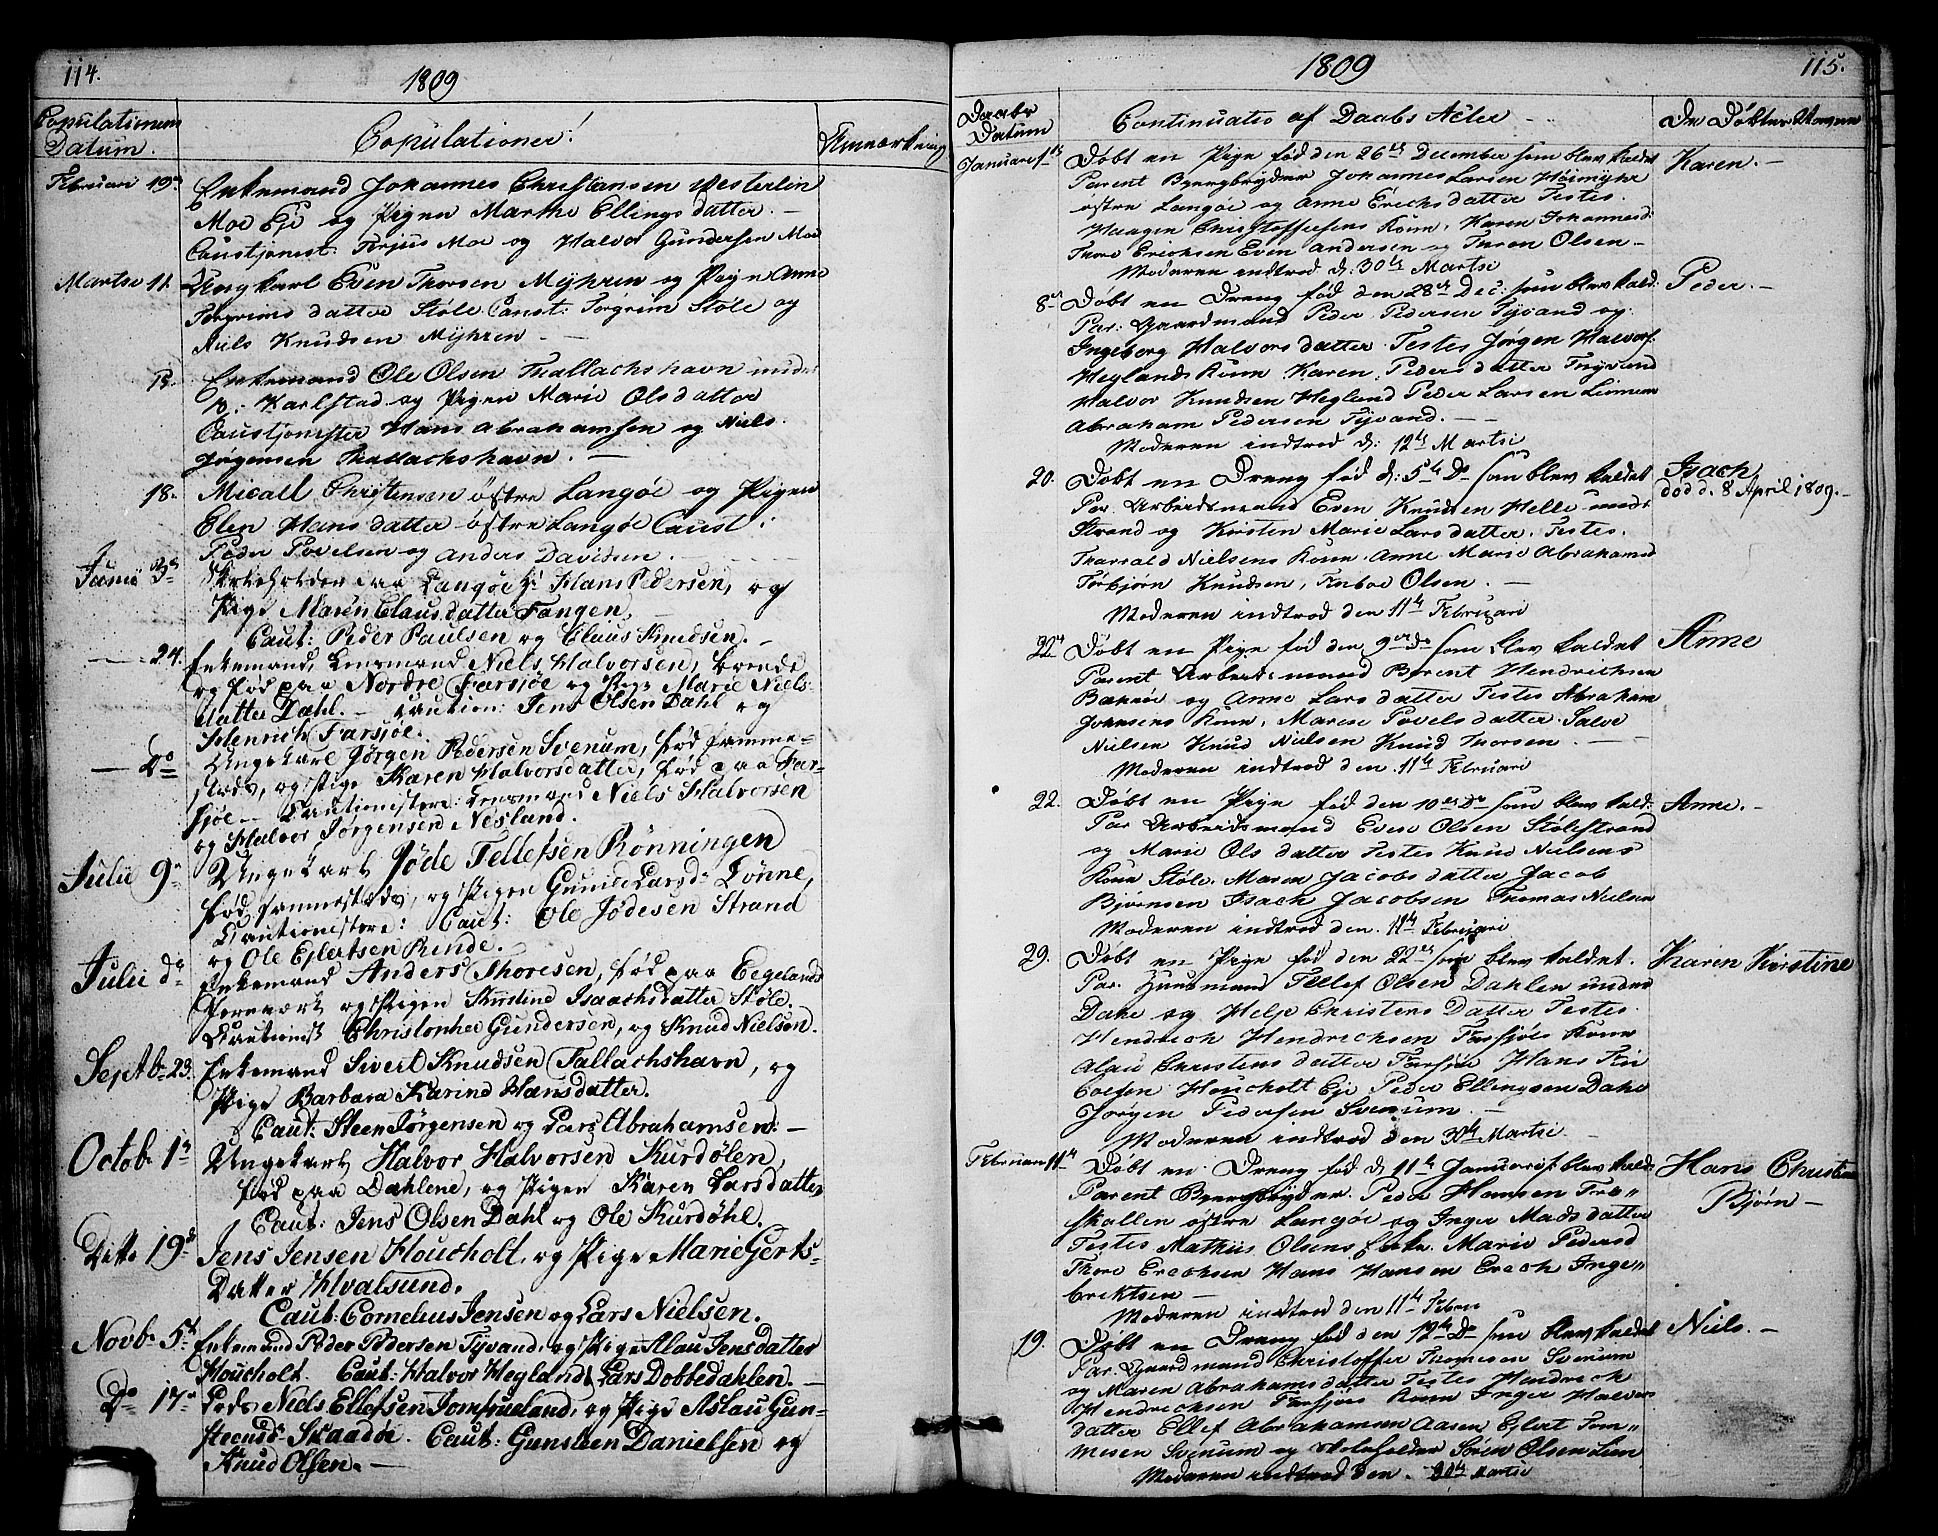 114.
1809
Copulationum Datum.
Copulationer.
Anmærkning
Februari 19de Enkemand Johannes Christansen Westerlin
Moe Eje og Pigen Marthe Ellings datter. —
Caustjonest: Terjus Moe og Halvor Gundersen Moe
Martsi 11. Ungkarl Even Thorsen Mÿhren og Pigen Anne
Torgrims datter Støle. Caust: Torgrim Støle og
Niels Knudsen Mÿhren —
Enkemand Ole Olsen Thallachshavn under
Karlstad og Pigen Marie Olsdatter
Caustjonister Hans Abrahamsen og Niels
Jørgensen Thallachshavn. —
18. Micall Christensen østre Langøe og Pigen
Elen Hans datter østre Langøe Caust:
Peder Povelsen og Anders Davidsen. —
Junii 3de Skoleholder paa Langøe Hr Hans Pedersen, og
Pige Maren Clausdatter Tangen. —
Caut: Peder Paulsen og Claus Knudsen. —
— 24. Enkemand, Lensmand Niels Halvorsen, boende
og fød paa Nordre Farsjøe og Pige Marie Niels-
datter Dahl. — Caution: Jens Olsen Dahl og
Henrich Farsjøe.
— Do Ungekarl Jørgen Pedersen Svenum, fød samme-
steds, og Pige Karen Halvorsdatter, fød paa Far-
sjøe — Cautionistere: Lensmand Niels Halvorsen
og Halvor Jørgensen Nesland.
Julii 9de Ungekarl Jøde Tellefsen Rønningen
fød sammestæds, og Pigen Gunild Larsd: Lønne,
Cautionistere: Caut: Ole Jødesen Strand
og Ole Ejlertsen Rinde. —
Julii do Enkemand Anders Thoresen, fød paa Eegelands
Jernværk og Pigen Kirstine Isaachsdatter Støle.
Cautionist Christopher Gundersen, og Knud Nielsen.
Septbr 23. Enkemand Sivert Knudsen Tallachshavn, og
Pige Barbara Karine Hansdatter.
Caut: Steen Jørgensen og Lars Abrahamsen: —
Octobr 1de Ungekarl Halvor Halvorsen Kurdølen,
fød paa Dahlene, og Pigen Karen Larsdatter
Caut: Jens Olsen Dahl og Ole Kurdøhl.
Ditto 19de Jens Jensen Houcholt, og Pige Marie Gerts-
Datter Hvalsund.
Caut: Cornelius Jensen og Lars Nielsen.
Novbr 5te Enkemand Peder Pedersen Tyvand, og Pige Alau Jensdatter
Houcholt. Caut: Halvor Hegland & Lars Dobbedahlen. —
Do 17de Lods Niels Ellefsen Jomfrueland, og Pige Aslau Gun-
stensd: Skaadøe. Caut: Gunsteen Danielsen og
Knud Olsen. —
1809
115.
Daabs Datum
Continuatio af Daabs Acter —
De Døbtes Navne
Januarii 1ste Døbt en Pige fød den 26de December som blev kaldet Karen. —
Parent Byergbryder Johannes Larsen Høimÿhr
østre Langøe og Anne Erichsdatter Testes.
Haagen Christoffersens Kone, Karen Johannesd:
Thore Erichsen Even Andersen og Thron Olsen —
Moderen indtrod d: 30te Martsi
8de Døbt en Dreng fød den 28de Dec: som blev kald: Peder. —
Par: Gaardmand Peder Pedersen Tyvand og
Ingeborg Halvorsdatter Testes Jørgen Halvors:
Heglands Kone Karen Pedersdatter Tyvand
Halvor Knudsen Hegland Peder Larsen
Abraham Pedersen Tyvand. —
Moderen indtrod d: 12te Martsi
20. Døbt en Dreng fød d: 5te Do som blev kaldet Isach
død d. 8 April 1809. —
Par. Arbeidsmand Even Knudsen Helle
Strand og Kirsten Marie Larsdatter. Testes.
Tharald Nielsens Kone Anne Marie Abrahamsd
Torbjørn Knudsen, Olsen. —
Moderen indtrod den 11te Februari
22de Døbt en Pige fød den 9de Do som blev kaldet Anne
Parent Arbeidsmand Berent Hendrichsen
og Anne Larsdatter Testes Abraham
Johnsens Kone, Maren Povelsdatter Salve
Nielsen Knud Nielsen Knud Thorsen. —
Moderen indtrod den 11te Februari
22. Døbt en Pige fød den 10de Do som blev kald: Anne. —
Par Arbeidsmand Even Olsen Stølestrand
og Marie Ols datter Testes Knud Nielsens
Kone Støle. Maren Jacobsdatter Jacob
Bjørnsen Isach Jacobsen Thomas Nielsen
Moderen indtrod den. 11te Februari
29. Døbt en Pige fød den 22de som blev kaldet. Karen Kirstine
Par. Huusmand Tellef Olsen Dahlen under
Dahl og Helje Christens Datter Testes
Hendrech Hendrechsen Farsjøes Kone
Alau Christens datter Farsjøe Hans
Houcholt Eje Peder Ellingsen Dahl
Jørgen Pedersen Svenum. —
Moderen indtrod den 30te Martsi
Februari 11te Døbt en Dreng fød d. 11te Januarii blev kald: Hans Christian
Bjørn —
Parent Byergbryder. Peder Hansen
skallen østre Langøe og Inger Mads datter
Testes Mathiis Olsens Enke. Marie Pedersd
Thore Erechsen Hans Hansen Erech Inge-
brektsen —
Moderen indtrod den 11te Febru
19. Døbt en Dreng fød den 12te Do som blev kaldet Niels. —
Par. Gaardmand Christoffer Thomesen Svenum
og Maren Abrahamsdatter Testes Hendrech
Hendrechsen Farsjøs Kone Inger Halvors
datter Ellef Abrahamsen Aasen Ejlert Tom-
mesen Svenum og Skoleholder Søren Olsen
Moderen indtrod den. 30te Martsi